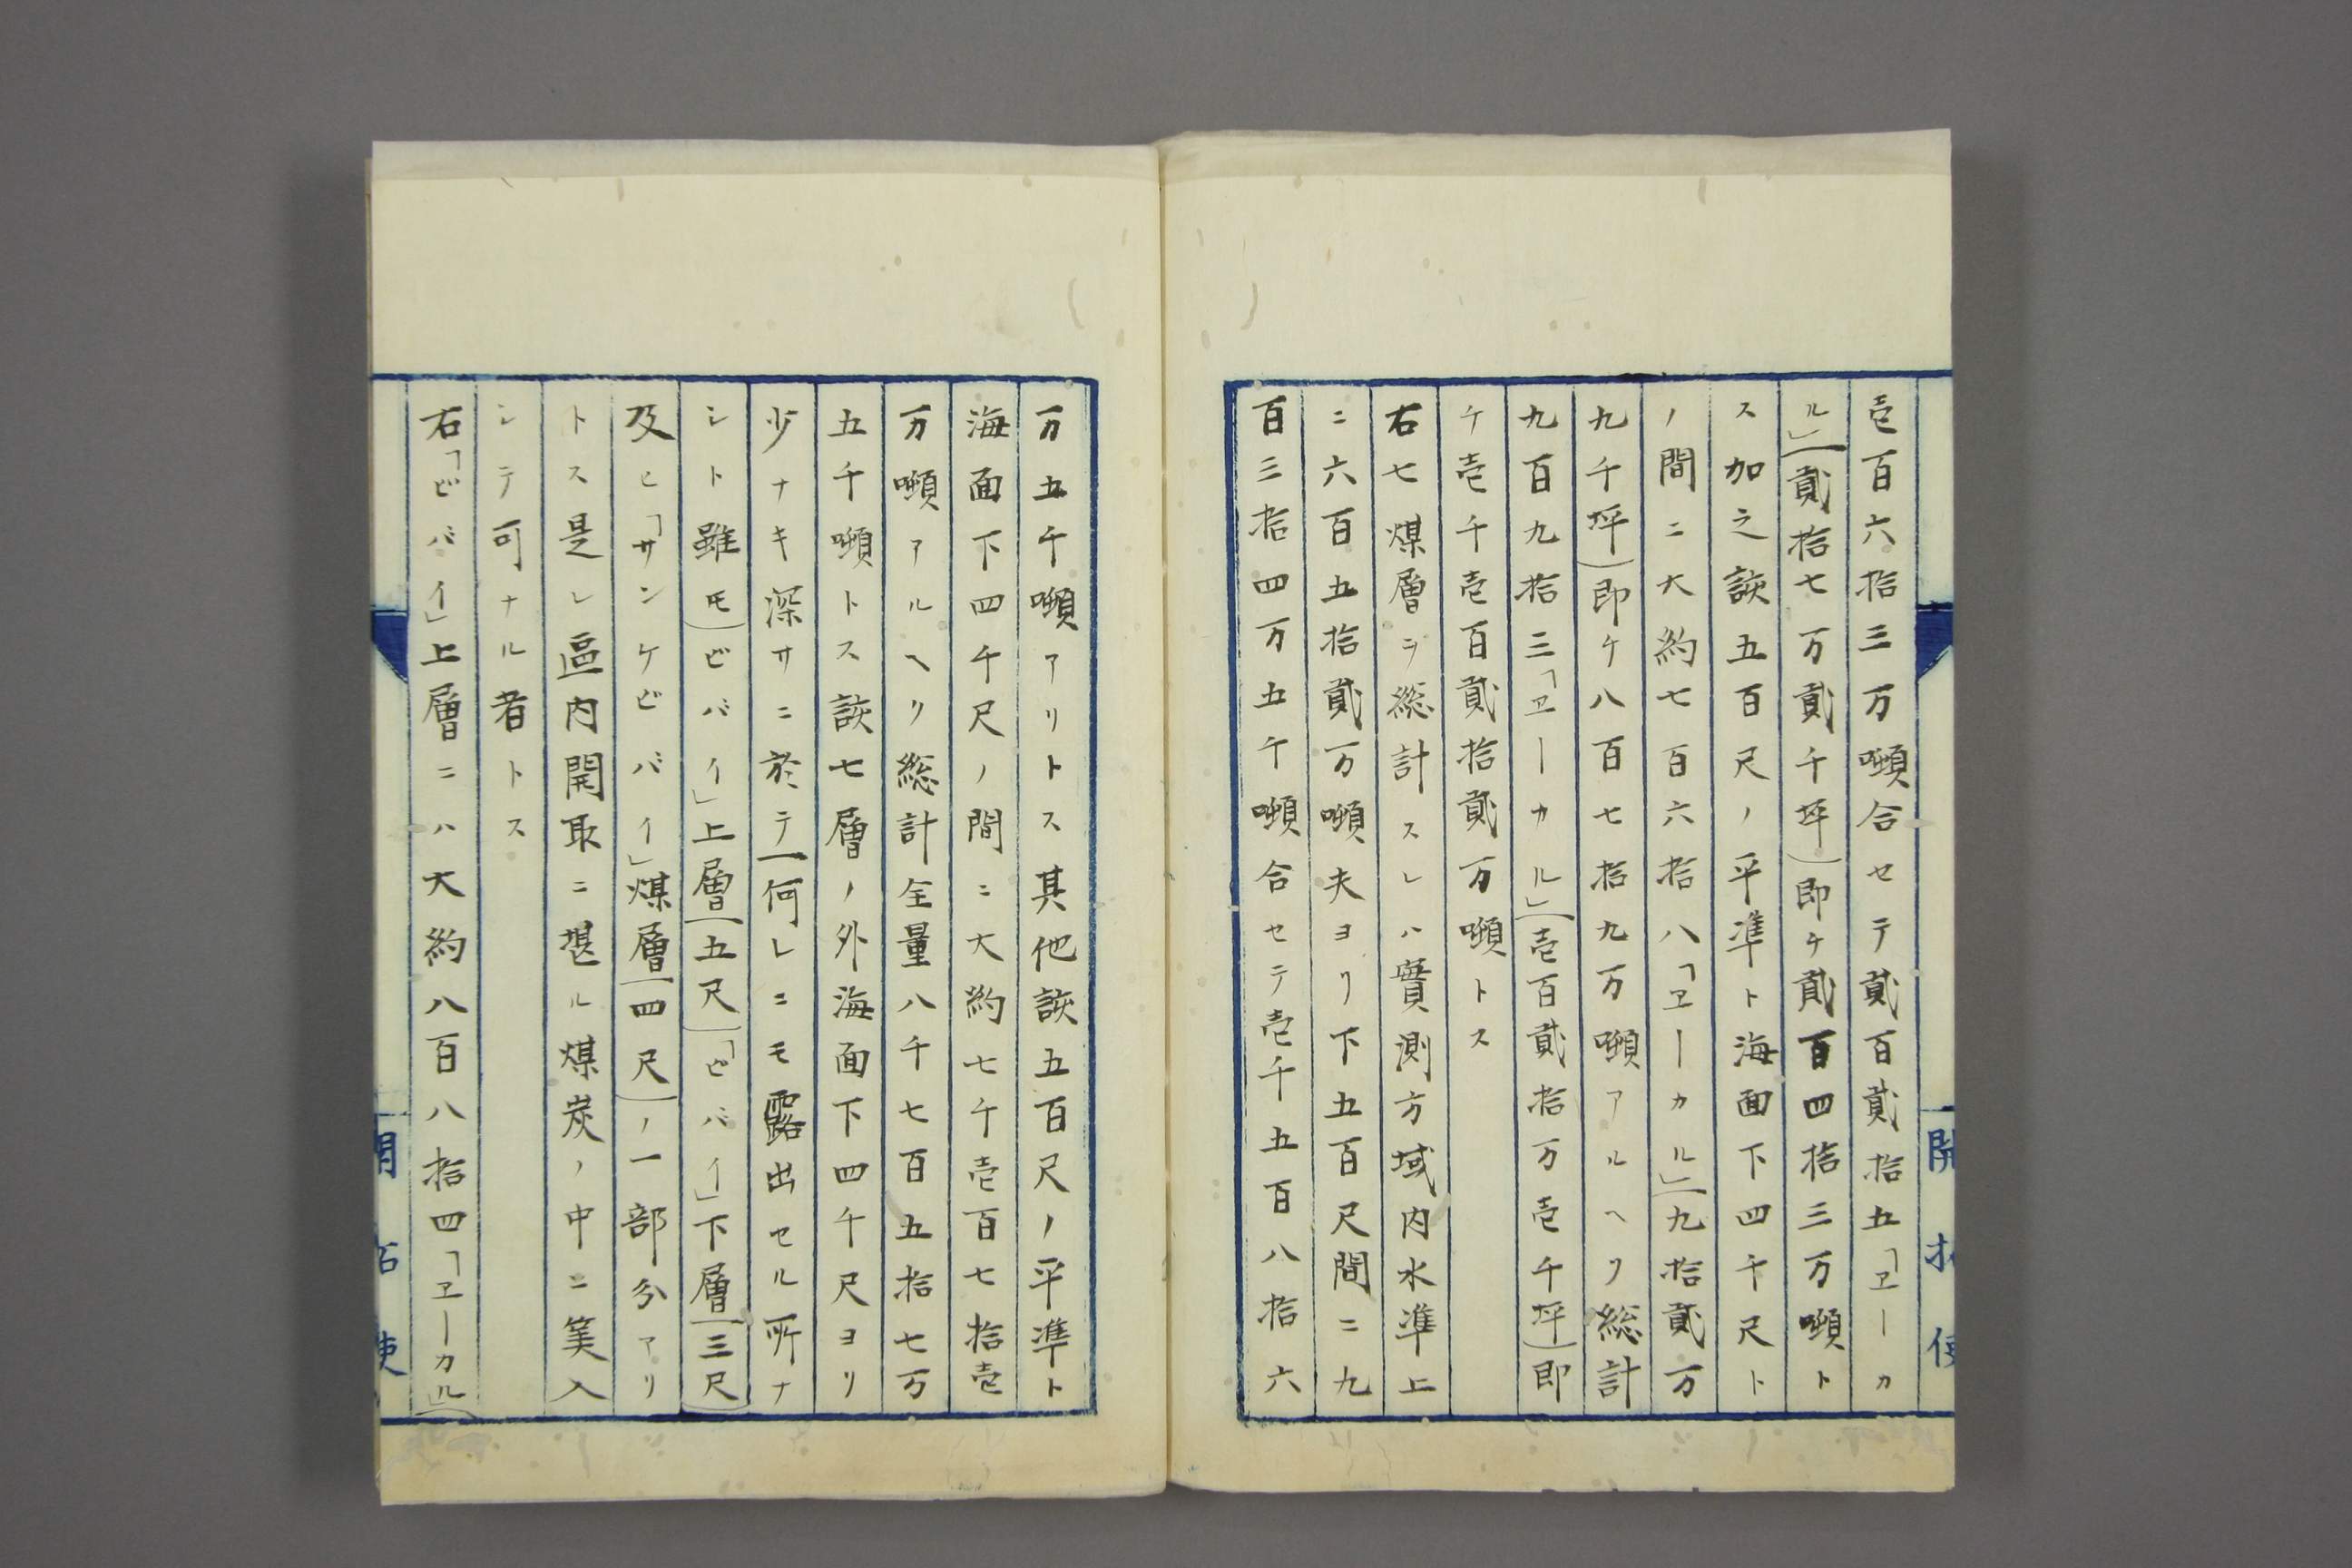 壱百六拾三万噸合セテ貮百貮拾五「ヱーカ
ル」(貮拾七万貮千坪)即ケ貮百四拾三万噸ト
ス加之該五百尺ノ平準ト海面下四千尺ト
ノ間ニ大約七百六拾八「ヱーカル」(九拾貮万
九千坪)即ケ八百七拾九万噸アルヘク総計
九百九拾三「ヱーカル」(壱百貮拾万壱千坪)即
ケ壱千壱百貮拾貮万噸トス
右七煤層ヲ総計スレハ實測方域内水準上
ニ六百五拾貮万噸夫ヨリ下五百尺間ニ九
百三拾四万五千噸合セテ壱千五百八拾六
万五千噸アリトス其他該五百尺ノ平準ト
海面下四千尺ノ間ニ大約七千壱百七拾壱
万噸アルヘク総計全量八千七百五拾七万
五千噸トス該七層ノ外海面下四千尺ヨリ
少ナキ深サニ於テ(何レニモ露出セル所ナ
シト雖モ)ビバイ」上層(五尺)「ビバイ」下層(三尺)
及ヒ「サンケビバイ」煤層(四尺)ノ一部分アリ
トス是レ區内開取ニ堪ル煤炭ノ中ニ筭入
シテ可ナル者トス
右「ビバイ」上層ニハ大約八百八拾四「ヱーカル」(
開拓使